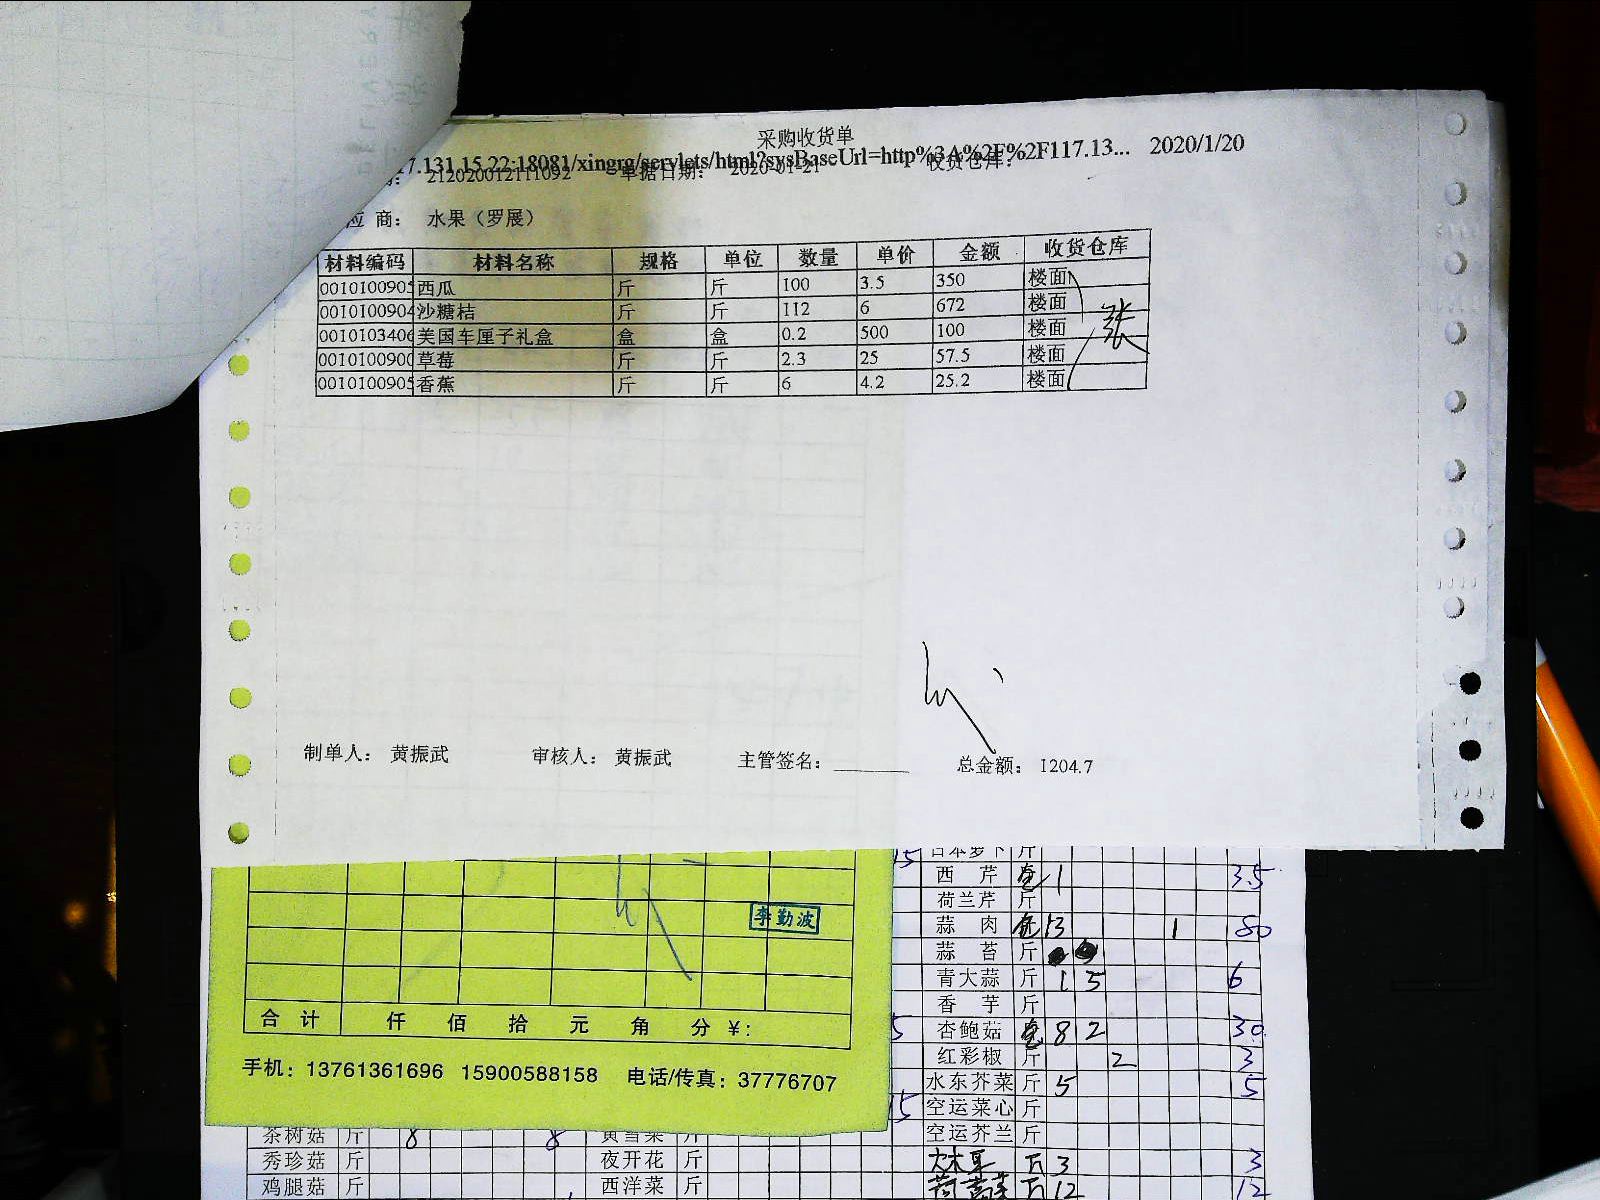 采购收货单
7.131.15.22:18081/xingrg/servlets/html?sysBaseUrl=http%3A%2F%2F117.13... 2020/1/20
212020012111092 单据日期: 2020-01-21 收货仓库:
应 商: 水果（罗展）
材料编码 材料名称 规格 单位 数量 单价 金额 收货仓库
0010100905 西瓜 斤 斤 100 3.5 350 楼面
0010100904 沙糖桔 斤 斤 112 6 672 楼面
0010103406 美国车厘子礼盒 盒 盒 0.2 500 100 楼面
0010100900 草莓 斤 斤 2.3 25 57.5 楼面
0010100905 香蕉 斤 斤 6 4.2 25.2 楼面
张
制单人: 黄振武 审核人: 黄振武 主管签名: 总金额: 1204.7
李勤波
合 计 仟 佰 拾 元 角 分 ¥:
手机: 13761361696 15900588158 电话/传真: 37776707
15 日本萝卜 斤
西 芹 1 3.5
荷兰芹 斤
蒜 肉 13 1 80
蒜 苔 斤
青大蒜 斤 1 5 6
香 芋 斤
5 杏鲍菇 8 2 30
红彩椒 斤 2 3
水东芥菜 斤 5 5
15 空运菜心 斤
茶树菇 斤 8 8 斤 空运芥兰 斤
秀珍菇 斤 夜开花 斤 3 3
鸡腿菇 斤 西洋菜 斤 12 12